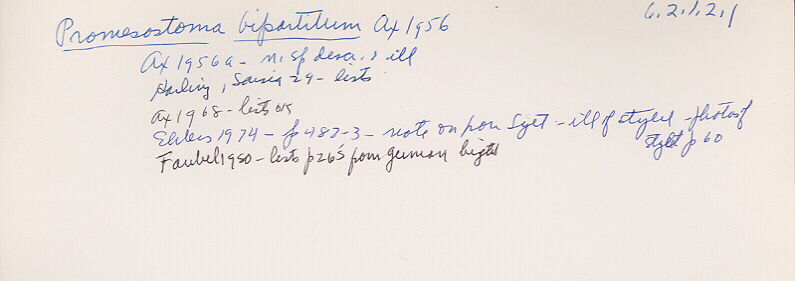 6.2.1.2.1
Promesostoma bipartitum Ax 1956
Ax 1956a - n. sp desc. & ill
Karling, Sarsia 29 - lists
Ax 1968 - lists
Ehlers 1974 - p 482-3 - note on from Sylt - ill of stylet - photos of stylet p 60
Faubel 1980 - lists p 265 from German bight